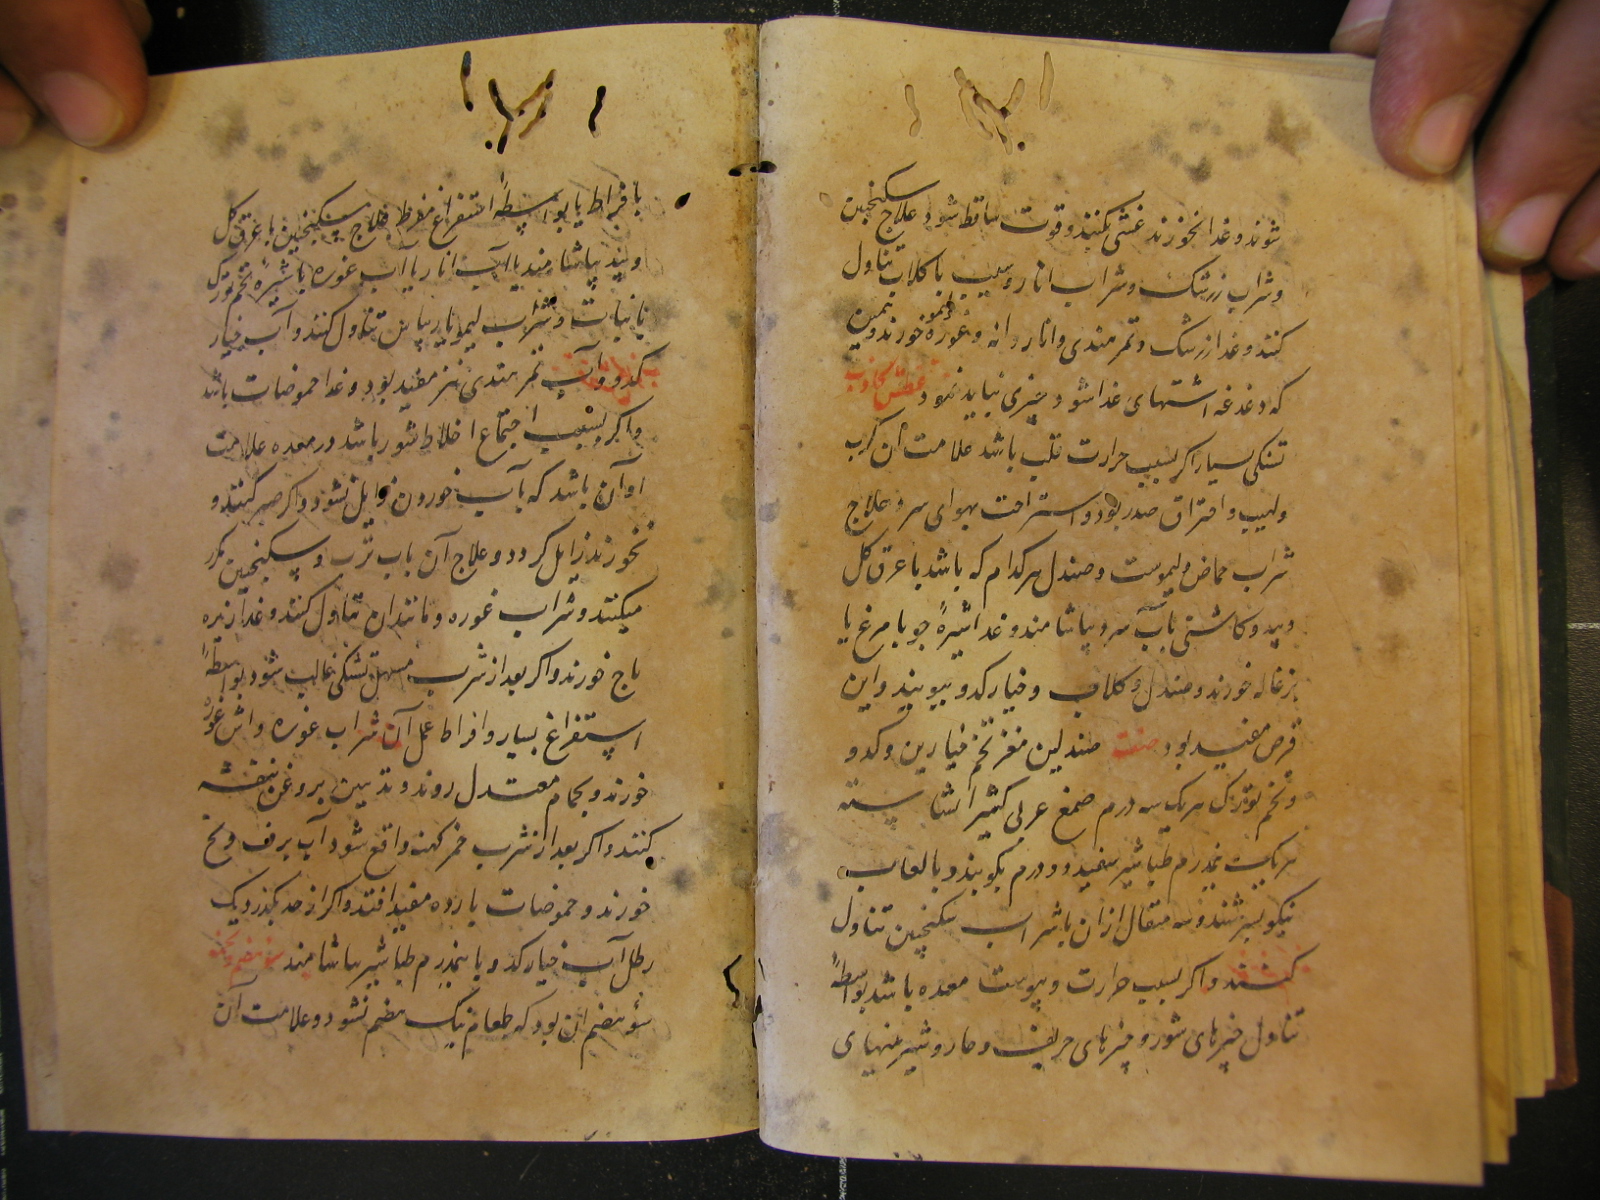 شوند و غذا نخورند غشی کنند و قوت ساقط شود علاج سکنجبین
و شراب زرشک و شراب انار و سیب با کلاب تناول
کنند و غذا زرشک و تمر هندی و انار دانه و غوره خورند و
که دغدغه اشتهای غذا شود چیزی نباید نمود عطش کاذب
تشنکی بسیار اکر بسبب حرارت قلب باشد علامت آن کرب
و لهیب و احتراق صدر بود و استراحت بهوای سرد علاج
شراب حماض و لیموست و صندل هر کدام که باشد با عرق کل
و بید و کاسنی بآب سرد بیاشامند و غذا شیرهٔ جو با مرغ یا
بزغاله خورند و صندل و کلاب و خیار کدو ببویند و این
قرص مفید بود صفت صندلین مغز تخم خیارین و کدو
و تخم تورک هر یک سه درم صمغ عربی کثیرا نشاسته
هر یک نیمدرم طباشیر سفید دو درم بکوبند و بالعاب
نیکو بسرشند و سه مثقال ازان با شراب سکنجبین تناول
کنند و اکر بسبب حرارت و یبوست معده باشد بواسطهٔ
تناول چیزهای شور و چیزهای حریف و حار و شیرینیهای
با فراط یا بواسطهٔ استفراغ مفرط علاج سکنجبین با عرق کل
و بید بیاشامند یا آب انار یا آب غوره با شیرهٔ تخم تورک
با نبات و شراب لیمو یا ریباس تناول کنند و آب خیار
کدو و آب تمر هندی نیز مفید بود و غذا حموضات باشد
و اکر بسبب اجتماع اخلاط شور باشد در معده علامت
او آن باشد که بآب خوردن زایل نشود و اکر صبر کنند و
نخورند زایل کردد و علاج آن باب ترب و سکنجبین مکرر
میکنند و شراب غوره و مانند ان تناول کنند و غذا زیره
باج خورند و اکر بعد از شرب مسهل تشنکی غالب شود بواسطهٔ
استفراغ بسیار و افراط عمل آن شراب غوره و اش غوره
خورند و بحمام معتدل روند و تدهین بروغن بنفشه
کنند و اکر بعد از شرب خمر کهنه واقع شود آب برف و یخ
خورند و حموضات بارده مفید افتد و اکر از حد بکذرد یک
رطل آب خیار کدو با نیمدرم طباشیر بیاشامند
سؤ هضم ان بود که طعام نیک هضم نشود و علامت آن